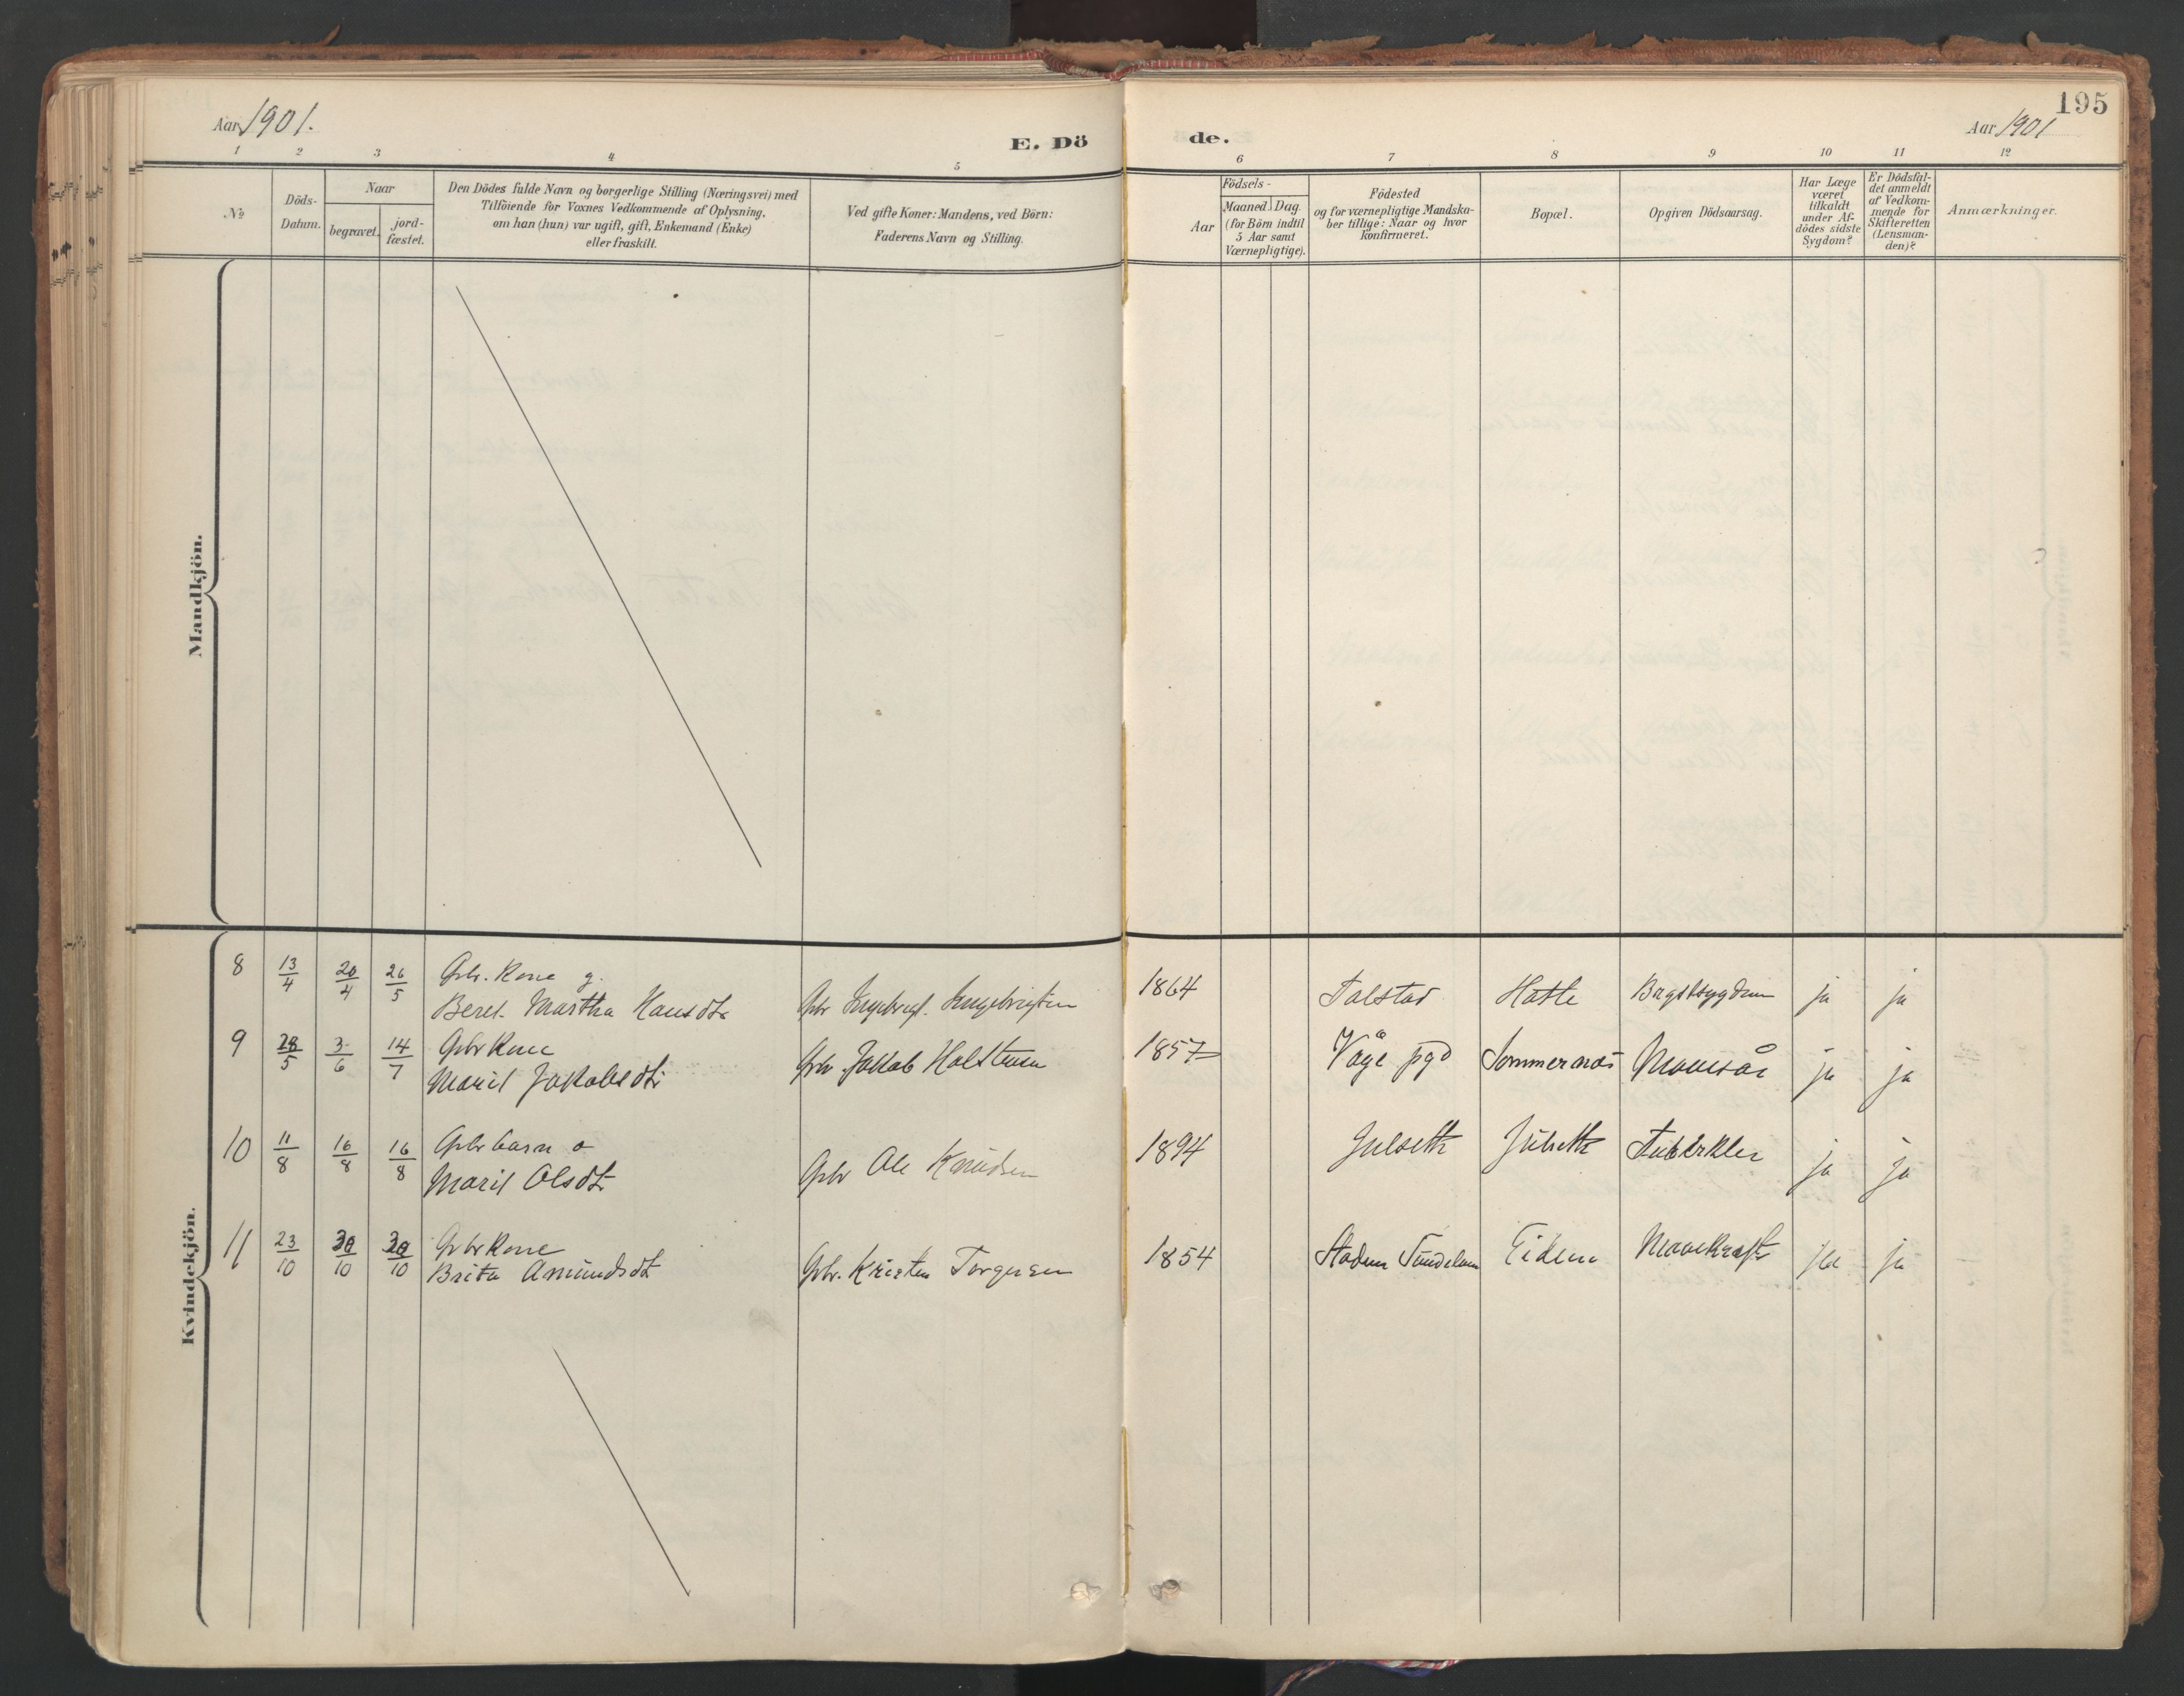 195
Aar 1901.
E. Dö
de.
Aar 1901
1 2 3 4 5 6 7 8 9 10 11 12
№
Döds-
Datum.
Naar
begravet.
jord-
fæstet.
Den Dödes fulde Navn og borgerlige Stilling (Næringsvei) med
Tilföiende for Voxnes Vedkommende af Oplysning,
om han (hun) var ugift, gift, Enkemand (Enke)
eller fraskilt.
Ved gifte Koner: Mandens, ved Börn:
Faderens Navn og Stilling.
Födsels-
Aar
Maaned. Dag.
(for Börn indtil
5 Aar samt
Værnepligtige).
Födested
og for værnepligtige Mandska-
ber tillige: Naar og hvor
konfirmeret.
Bopæl.
Opgiven Dödsaarsag.
Har Læge
været
tilkaldt
under Af-
dödes sidste
Sygdom?
Er Dödsfal-
det anmeldt
af Vedkom-
mende for
Skifteretten
(Lensman-
den)?
Anmærkninger.
Mandkjön.
Kvindekjön.
8 13/4 20/4 26/5 Gbr. Kone g.
Beret Martha Hansdt. Gbr Ingebrigt Ingebrigtsen 1864 Talstad Hatle Brystsygdom ja ja
9 28/5 3/6 14/7 Gbr Kone
Marit Jakobsdt. Gbr Jakob Halstensen 1857 Våge pgd Sommernæs Mavesår ja ja
10 11/8 16/8 16/8 Gbr barn
Marit Olsdt. Gbr Ole Knudsen 1894 Julseth Julseth Tuberkler ja ja
11 23/10 30/10 30/10 Gbr Kone
Brita Amundsdt Gbr. Kristen Torgersen 1854 Stadem Sundalem Eidem Mavekræft ja ja